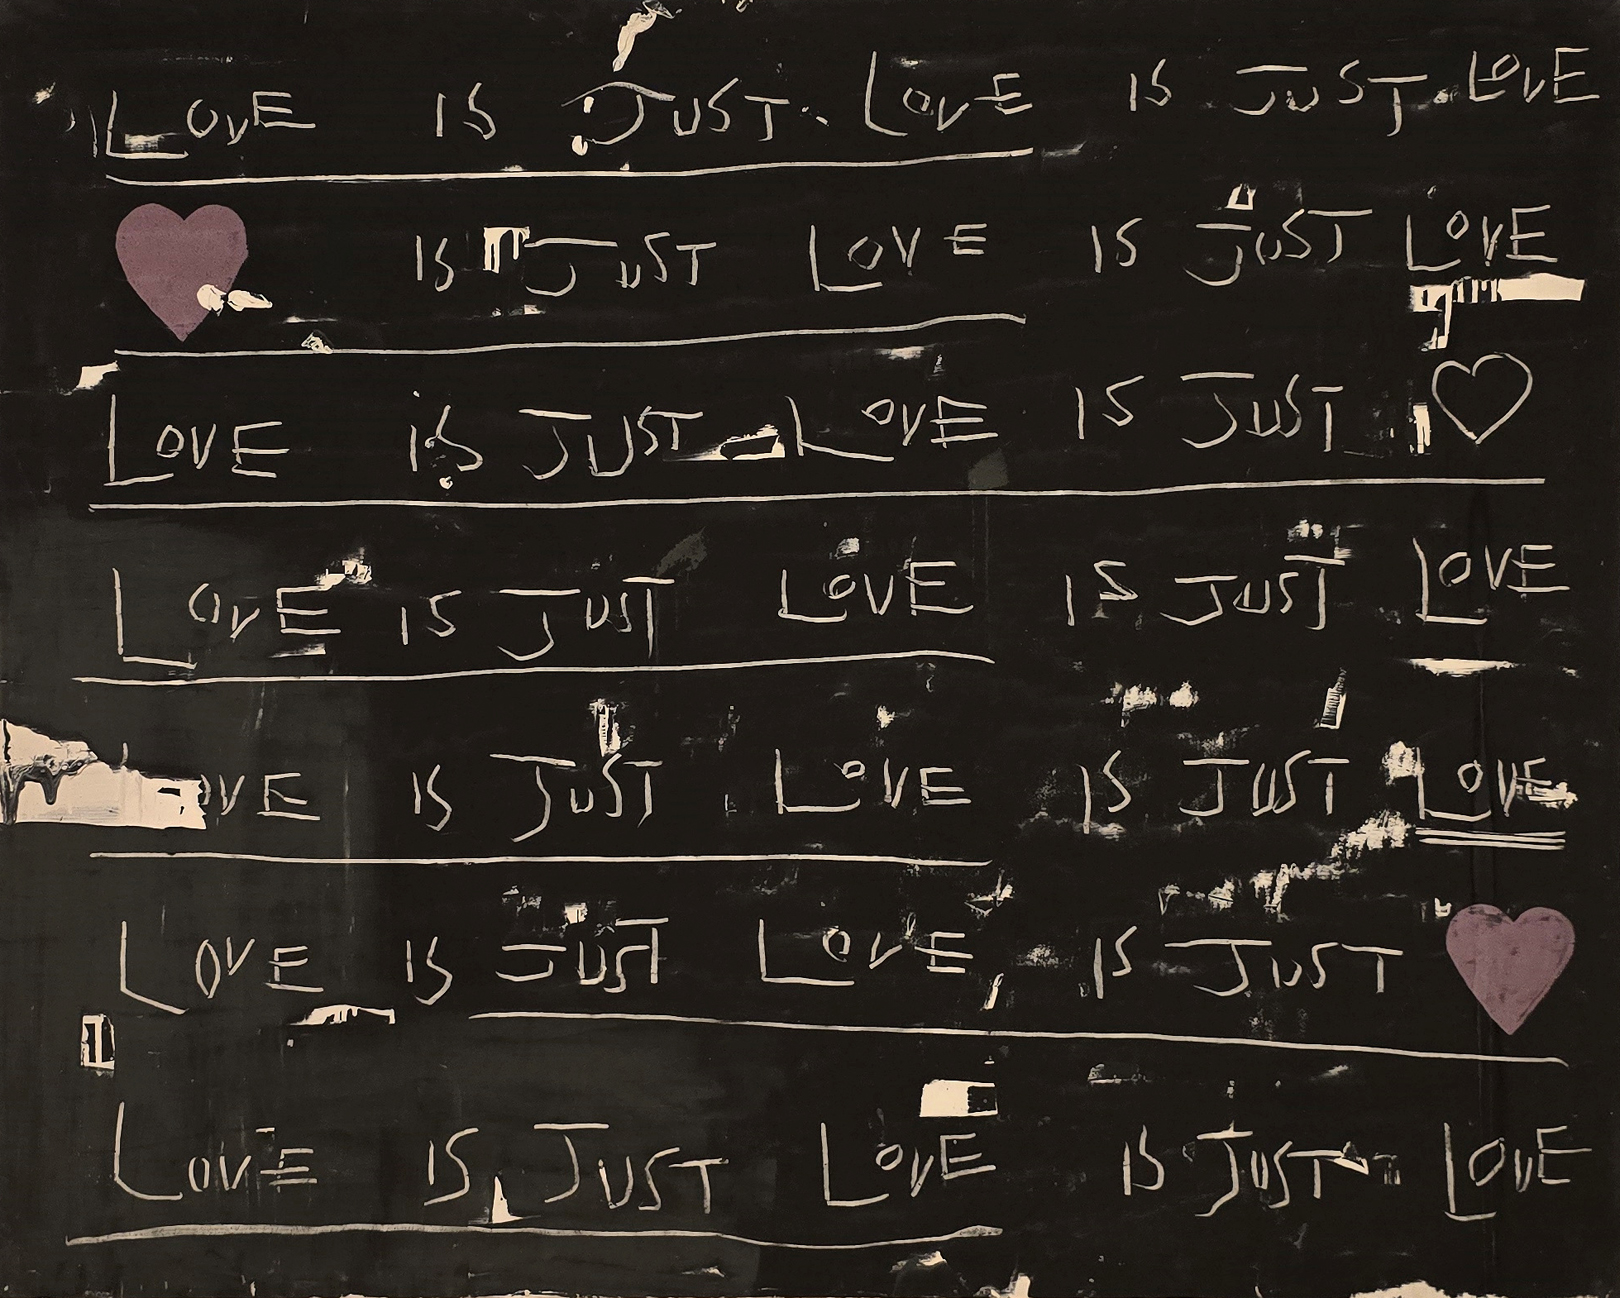 LOVE IS JUST LOVE IS JUST LOVE
IS JUST LOVE IS JUST LOVE
LOVE IS JUST LOVE IS JUST
LOVE IS JUST LOVE IS JUST LOVE
OVE IS JUST LOVE IS JUST LOVE
LOVE IS JUST LOVE IS JUST
LOVE IS JUST LOVE IS JUST LOVE